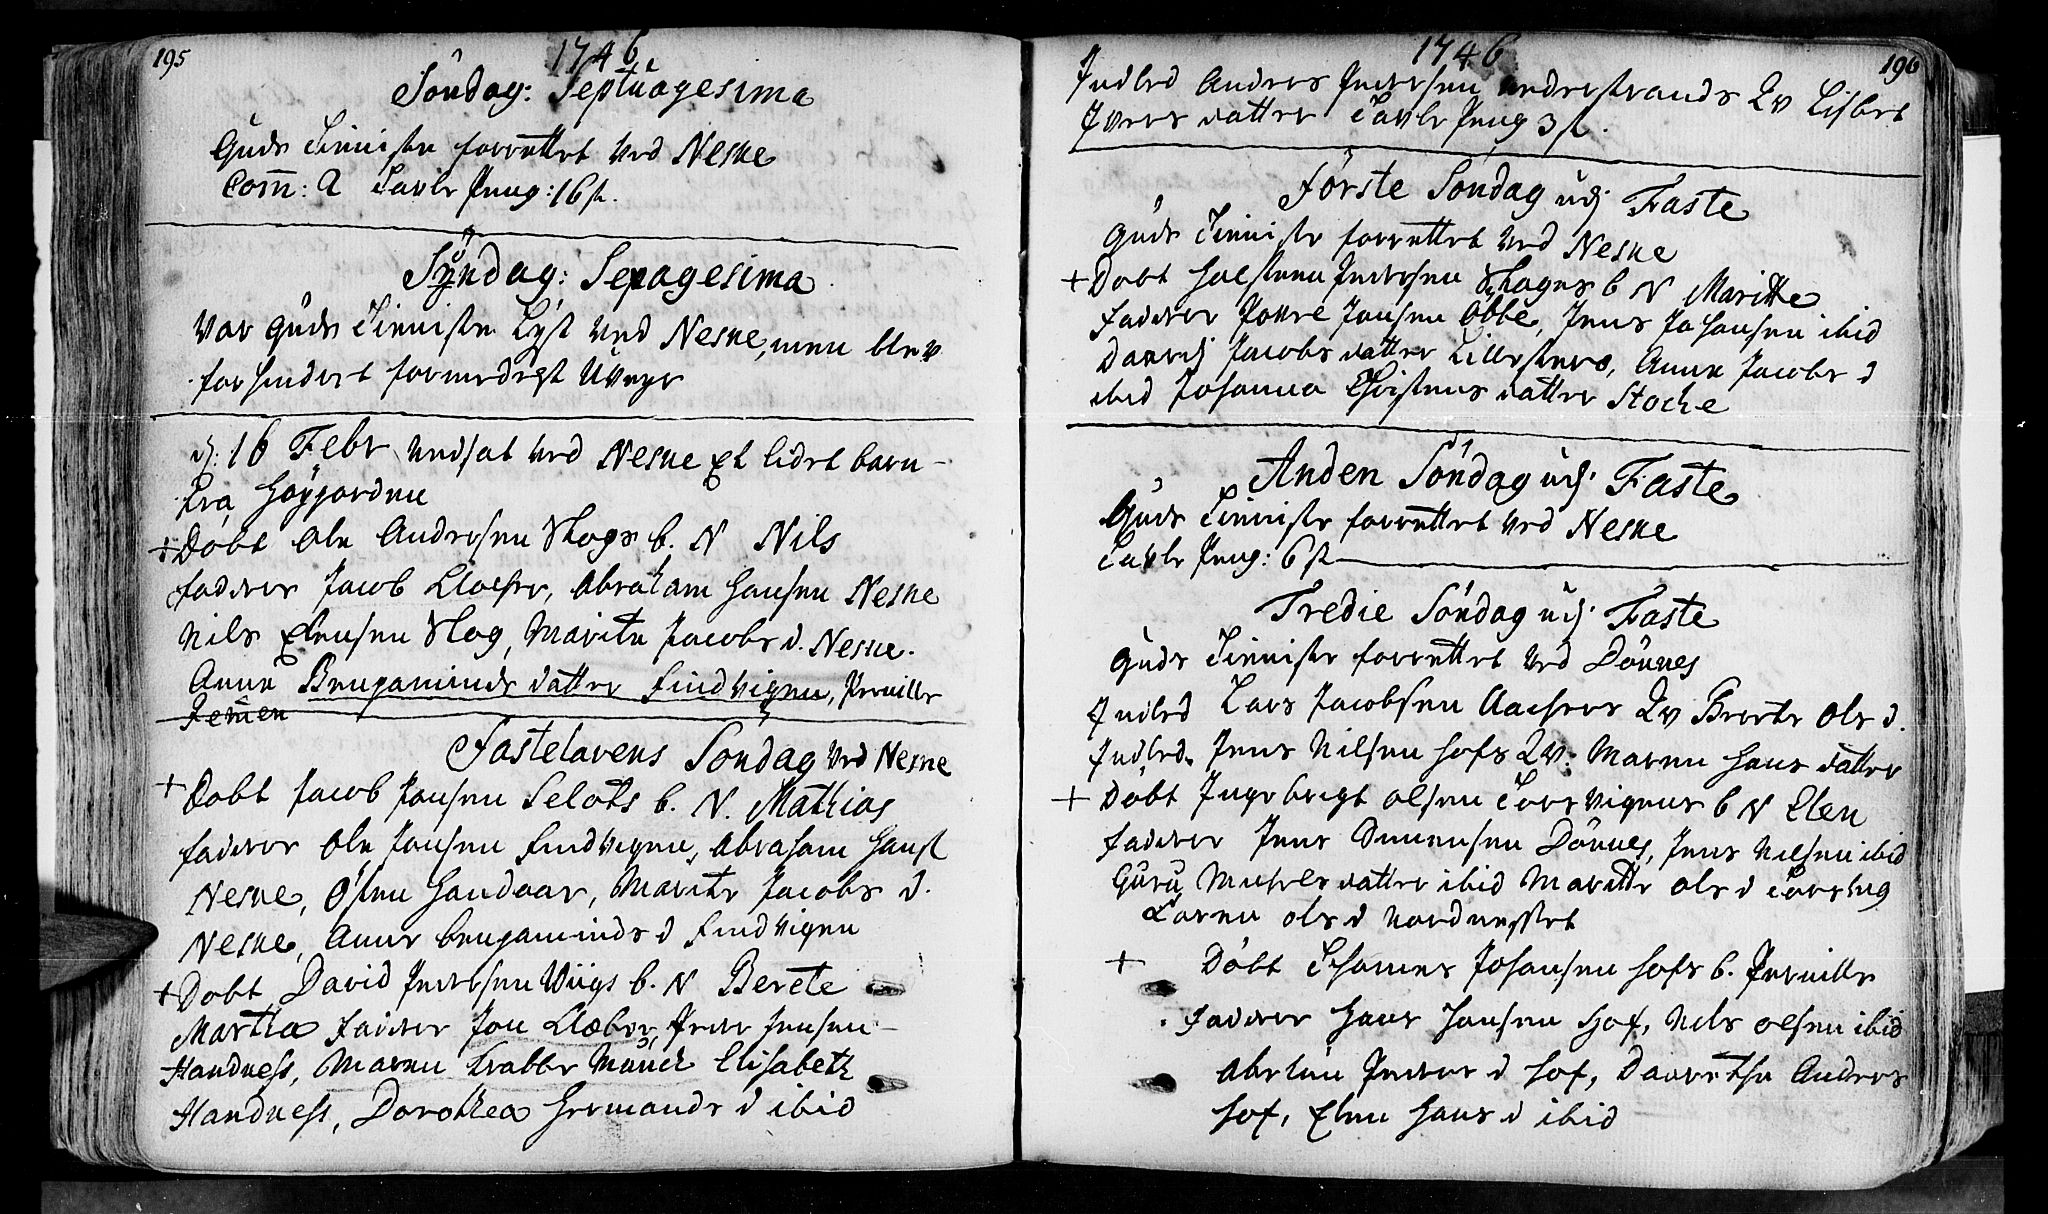 195
1746
Søndag: Septuagesima
Guds Tienniste forrettet ved Nesne
Com̅: 2 Tavle Peng: 16 s.
Søndag: Sexagesima
Var Guds Tienniste Lyst ved Nesne, men blev
forhindret formedegst Uveyr
d: 16 Febr Undsat ved Nesne Et lidet barn
fra Høygorden
+ Døbt Ole Andersen Skogs b. N Nils
fadrer Jacob Aaster, Abraham Hansen Nesne
Nils Elensen Skog, Marite Jacobs d. Nesne.
Anne Bengaminds datter Findvigen, Pernille
Remen
Fastelavens Søndag ved Nesne
+ Døbt Jacob Jonsen Selots b. N. Mathias
fadrer Ole Jonsen Findvigen, Abraham Hans
Nesne, Osten Handaar, Marite Jacobs d.
Nesne, Anne bengaminds d Findvigen
+ Døbt David Pedersen Viigs b. N Berete
Martha Fadrer Jon Aaeber, Peder Jensen
Handness, Maren Krabbe Munck Elisabeth
Handness, Dorothea Hermands d ibid
1746
196
Indled Anders Pedersen Nedrestrands Qv Lisbet
Ivers datter Tavle Peng 3 s.
Første Søndag udj Faste
Guds Tienniste forrettet ved Nesne
+ Døbt Holsten Pedersen Skages b N Maritte
Fadrer Povel Jonsen Obbe, Jens Johansen ibid
Daardj Jacobs datter Lillesteroe, Anne Jacobs d
ibid Johanna Christens datter Stocke
Anden Søndag udj Faste
Guds Tienniste forrettet ved Nesne
Tavle Peng: 6 s
Tredie Søndag udj Faste
Guds Tienniste forrettet ved Dønnes
Indled Lars Jacobsen Aasers Qv Berete Ols d.
Indled Jens Nilsen Hofs Qv: Maren Hans datter
+ Døbt Ingebrigt Olsen Torsvigens b N Elen
Fadrer Jens Simensen Dønnes, Jens Nilsen ibid
Guru Michels datter ibid Maritte Ols d Torsvig
Karen Ols d Nordnesset
+ Døbt Johannes Johansen Hofs b. Pernille
Fadrer Hans Hansen Hof, Nils Olsen ibid
Abelun Peders d Hof, Daarethe Anders
Hof, Elen Hans d ibid